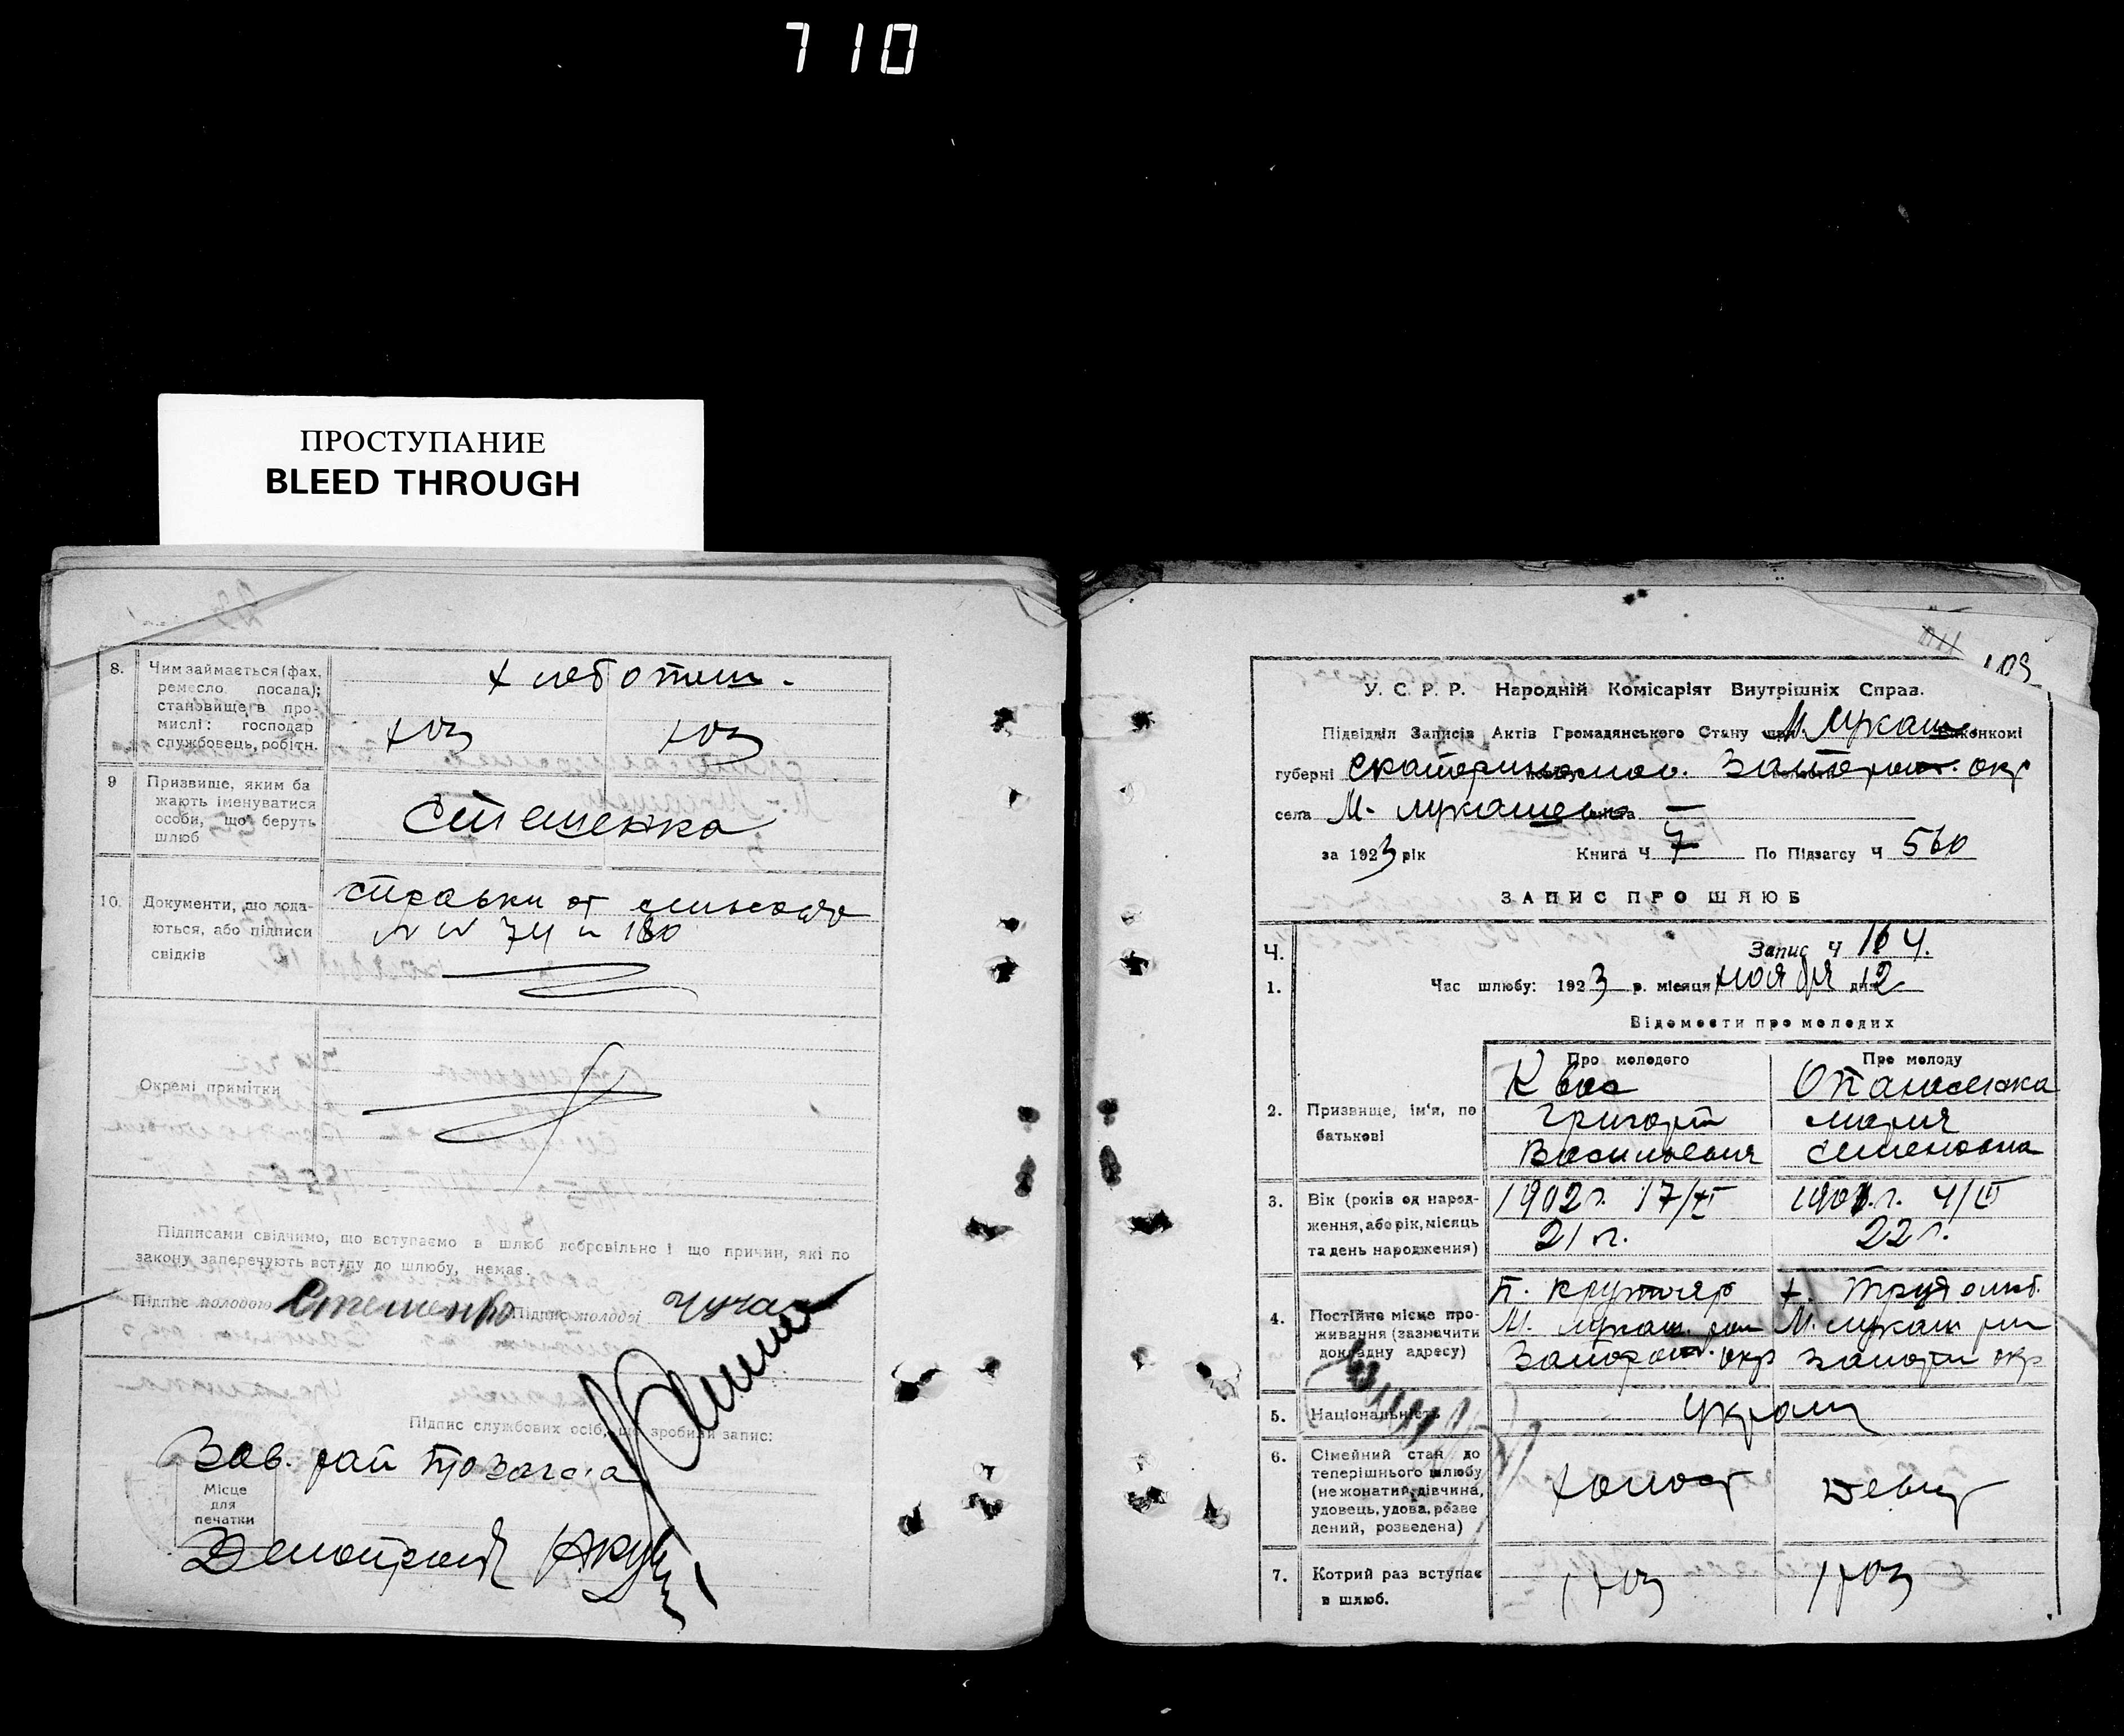 710
ПРОСТУПАНИЕ
BLEED THROUGH
8. Чим займається (фах,
ремесло, посада);
становище в про-
мислі: господар
службовець, робітн.
хлебопаш.
хоз хоз
9 Призвище, яким ба
жають іменуватися
особи, що беруть
шлюб
Стешенко
10. Документи, що дода-
ються, або підписи
свідків
справки от
№ № 74 и 180
Окремі примітки
Підписами свідчимо, що вступаємо в шлюб добровільно і що причин, які по
закону заперечують вступу до шлюбу, немає.
Підпис молодого Стешенко Підпис молодої Чучас
Підпис службових осіб, що зробили запис:
Зав. рай
Місце
для
печатки
109
У. С. Р. Р. Народній Комісаріят Внутрішніх Справ.
Підвідділ Записів Актів Громадянського Стану при М. Лукаш виконкомі
губерні Екатеринослав. Запорож. окр
села М. Лукашевка —
за 1923 рік Книга Ч 7 По Підзагсу Ч 560
ЗАПИС ПРО ШЛЮБ
Ч. Запис Ч 164.
1. Час шлюбу: 1923 р. місяця ноября дня 12
Відомости про молодих
Про молодого Про молоду
2. Призвище, ім'я, по
батькові
Квас
Григорий Мария
Васильевич Семеновна
3. Вік (років од народ-
ження, або рік, місяць
та день народження)
1902 г. 17/XI 1901 г. 4/III
21 г. 22 г.
4. Постійне місце про-
живання (зазначити
докладну адресу)
п. Крутояр х. Трудолюб.
М. Лукаш. рай М. Лукаш рай
Запорож. окр Запорож окр
5. Національність
Украин
6. Сімейний стан до
теперішнього шлюбу
(нежонатий, дівчина,
удовець, удова, розве
дений, розведена)
холост девиц
7. Котрий раз вступає
в шлюб.
1 раз 1 раз